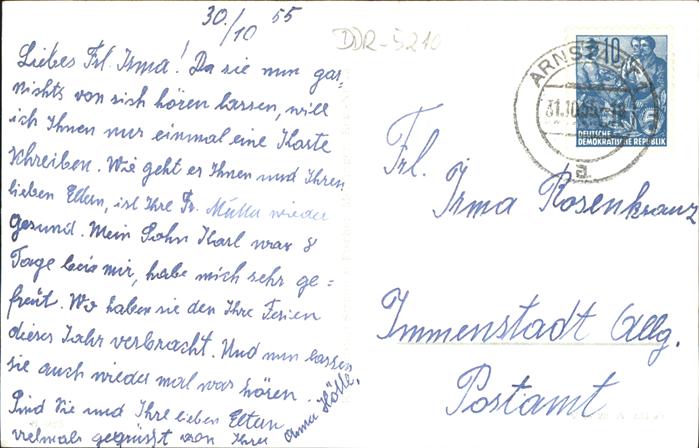 30./10 55
DDR-5210
Liebes Frl. Irma! Da sie nun gar-
nichts von sich hören lassen, will
ich Ihnen nur einmal eine Karte
schreiben. Wie geht es Ihnen und Ihren
lieben Eltern, ist Ihre Fr. Mutter wieder
gesund. Mein Sohn Karl war 8
Tage bei mir, habe mich sehr ge=
freut. Wo haben sie den Ihre Ferien
dieses Jahr verbracht. Und nun lassen
sie auch wieder mal was hören.
Sind Sie und Ihre lieben Eltern
vielmals gegrüsst von Ihrer
Anna Hölle.
10
DEUTSCHE
DEMOKRATISCHE REPUBLIK
31.10.55
Frl.
Irma Rosenkranz
Immenstadt Allg.
Postamt